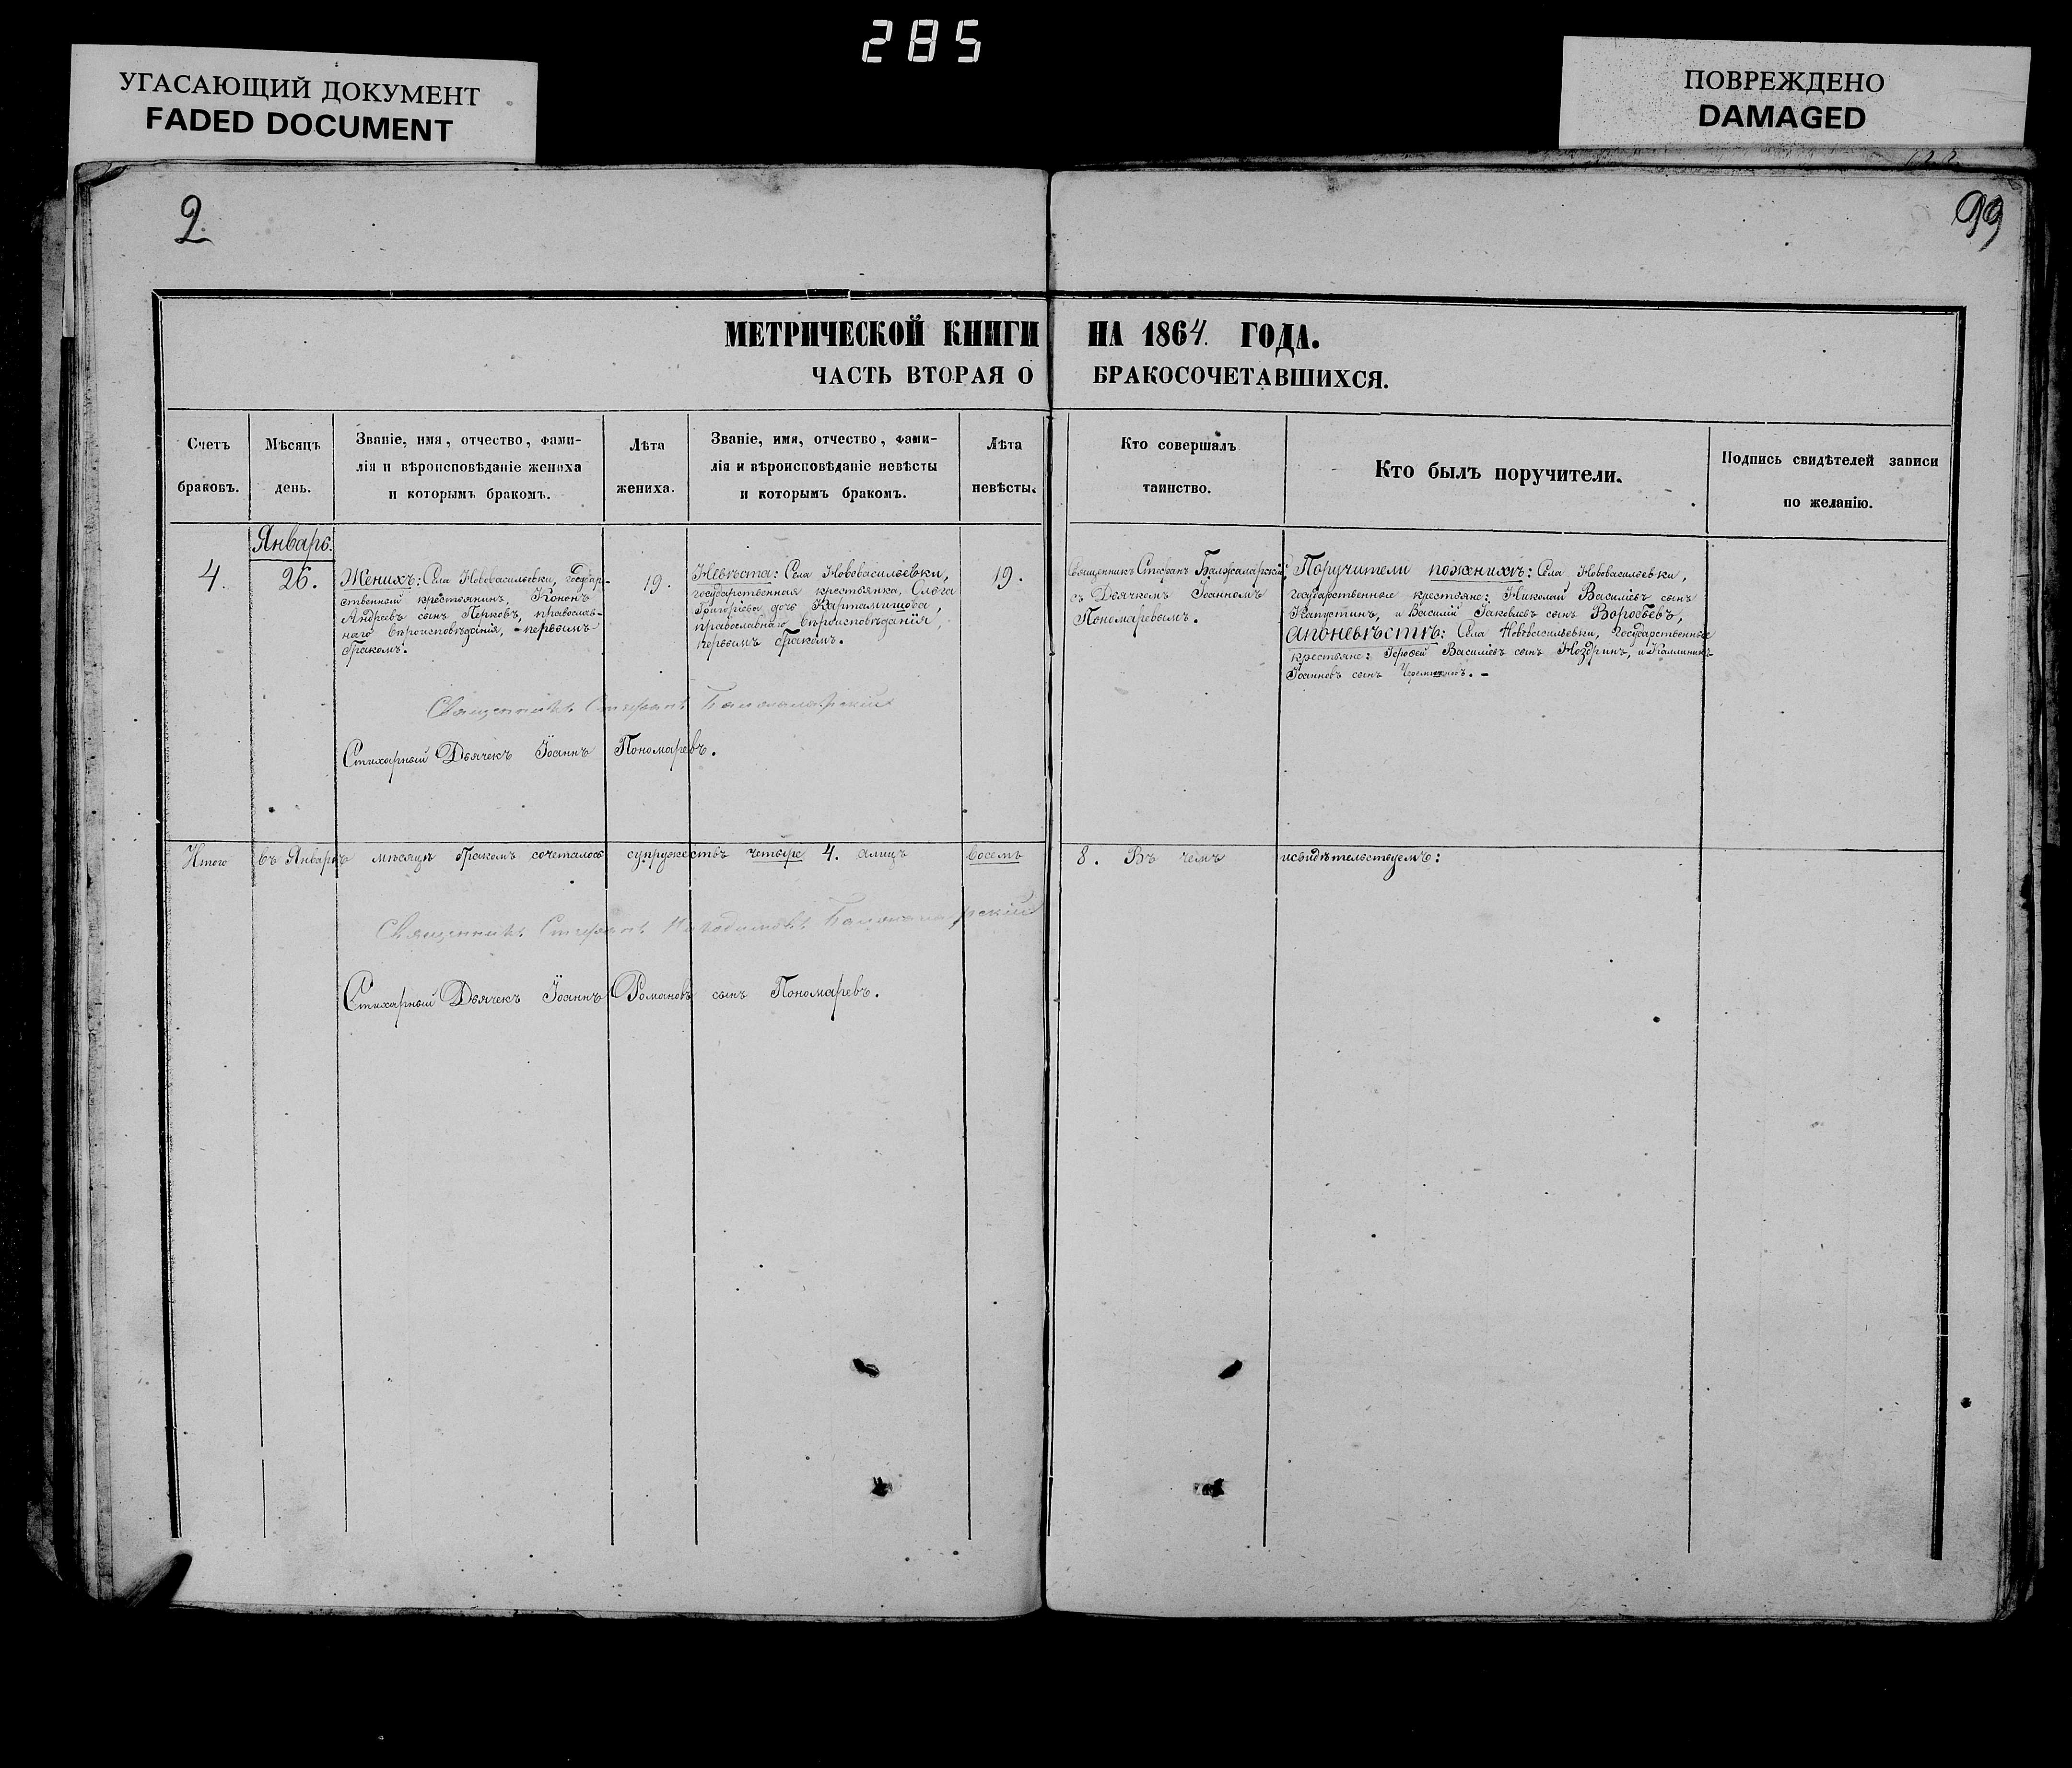 285
УГАСАЮЩИЙ ДОКУМЕНТ
FADED DOCUMENT
ПОВРЕЖДЕНО
DAMAGED
2.
99
МЕТРИЧЕСКОЙ КНИГИ НА 1864. ГОДА.
ЧАСТЬ ВТОРАЯ О БРАКОСОЧЕТАВШИХСЯ.
Счетъ
браковъ.
Мѣсяцъ
день.
Званіе, имя, отчество, фами-
лія и вѣроисповѣданіе жениха
и которымъ бракомъ.
Лѣта
жениха.
Званіе, имя, отчество, фами-
лія и вѣроисповѣданіе невѣсты
и которымъ бракомъ.
Лѣта
невѣсты.
Кто совершалъ
таинство.
Кто былъ поручители.
Подпись свидѣтелей записи
по желанію.
Январь.
4.
26.
Женихъ: Села Нововасильевки, государ-
ственный крестьянинъ, Кононъ
Андреевъ сынъ Перковъ, православ-
наго вѣроисповѣданія, - первымъ
бракомъ.
19.
Невѣста: Села Нововасильевки,
государственная крестьянка, Ольга
Григорьева дочь Картамышова,
православнаго вѣроисповѣданія,
первымъ бракомъ.
19.
Священникъ Стефанъ
съ Дьячкомъ Іоанномъ
Пономаревымъ.
Поручители поженихѣ: Села Нововасильевки,
государственные крестьяне: Николай Васильевъ сынъ
Капустинъ, и Василій Іаковлевъ сынъ Воробьевъ,
апоневѣстѣ: Села Нововасильевки, государственные
крестьяне: Васильевъ сынъ Ноздринъ, и Каллиникъ
Іоанновъ сынъ
Священникъ Стефанъ
Стихарный Дьячекъ Іоаннъ Пономаревъ.
Итого въ Январѣ мѣсяцѣ бракомъ сочеталось супружествъ четыре 4. алицъ восемь 8. Въ чемъ исвидѣтельствуемъ:
Священникъ Стефанъ Никодимовъ
Стихарный Дьячекъ Іоаннъ Романовъ сынъ Пономаревъ.